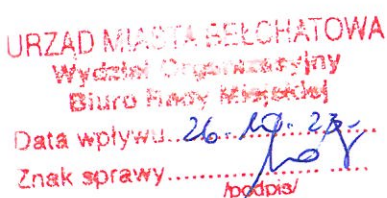 URZĄD MIASTA BEŁCHATOWA
Wydział Organizacyjny
Biuro Rady Miejskiej
Data wpływu... 26. 10. 23r.
Znak sprawy..................
/podpis/